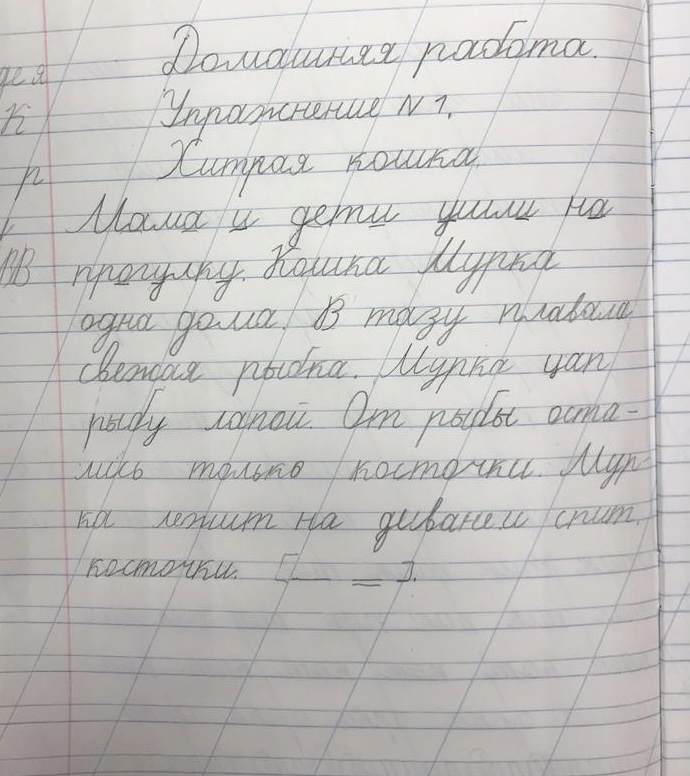 Домашняя работа.
Упражнение N 1.
Хитрая кошка.
Мама и дети ушли на
прогулку. Кошка Мурка
одна дома. В тазу плавала
свежая рыбка. Мурка цап
рыбу лапой. От рыбы оста-
лись только косточки. Мур-
ка лежит на диване и спит.
косточки. [— =].